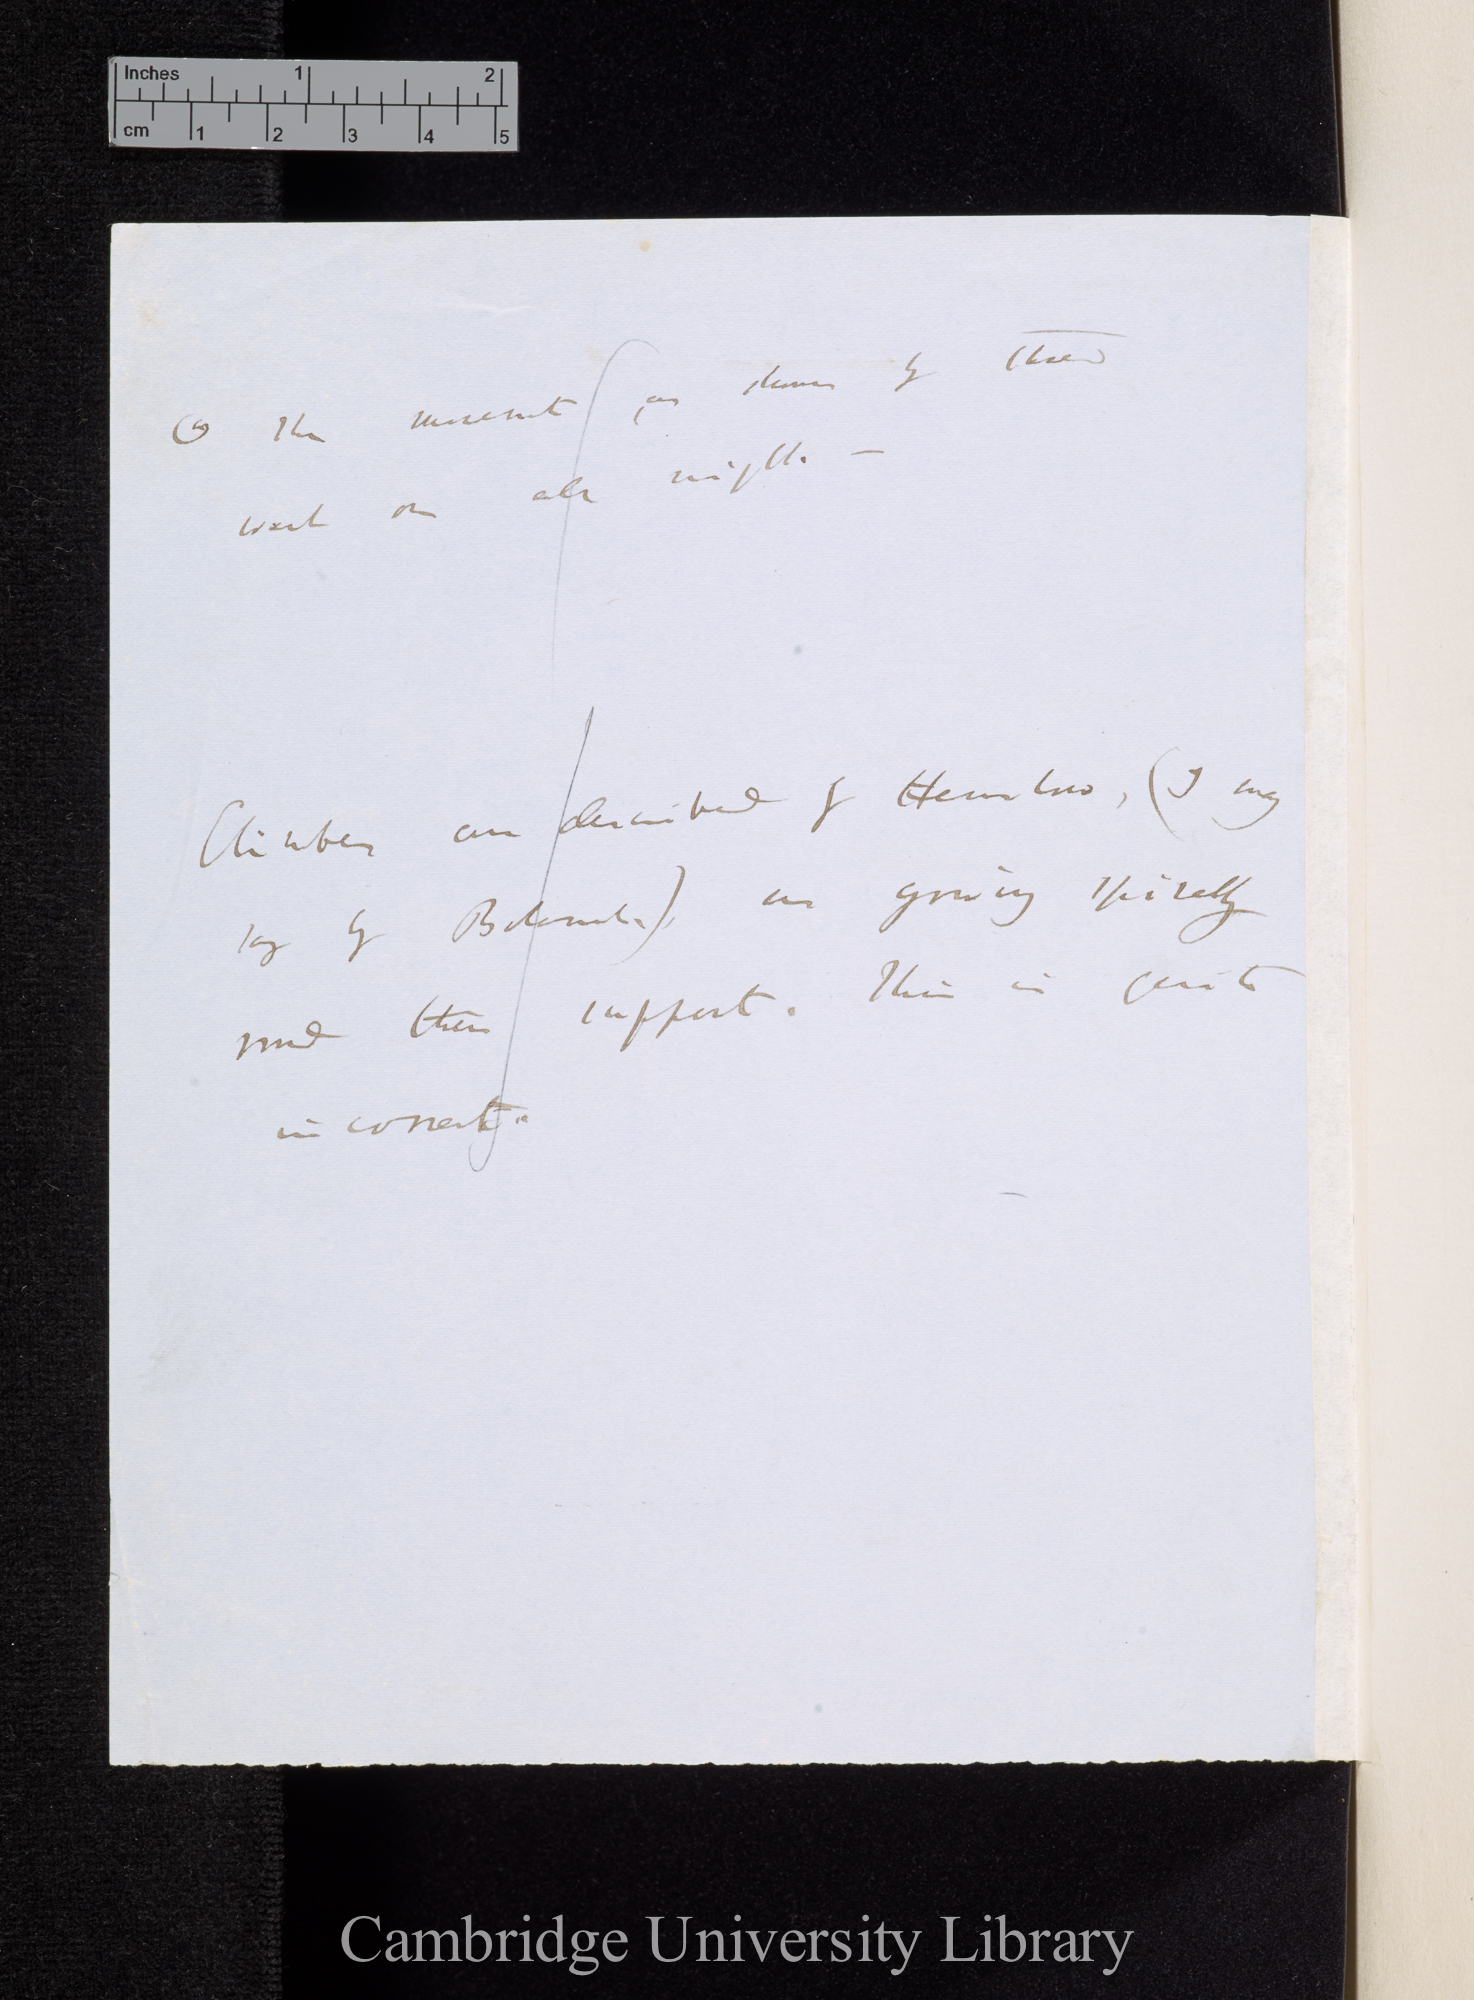 Inches 1 2
cm 1 2 3 4 5
The movements, as shown by these
went on all night. —
Climbers are described by Henslow, (I may
say by Botanists), as growing spirally
round their support. This is quite
incorrect.
Cambridge University Library